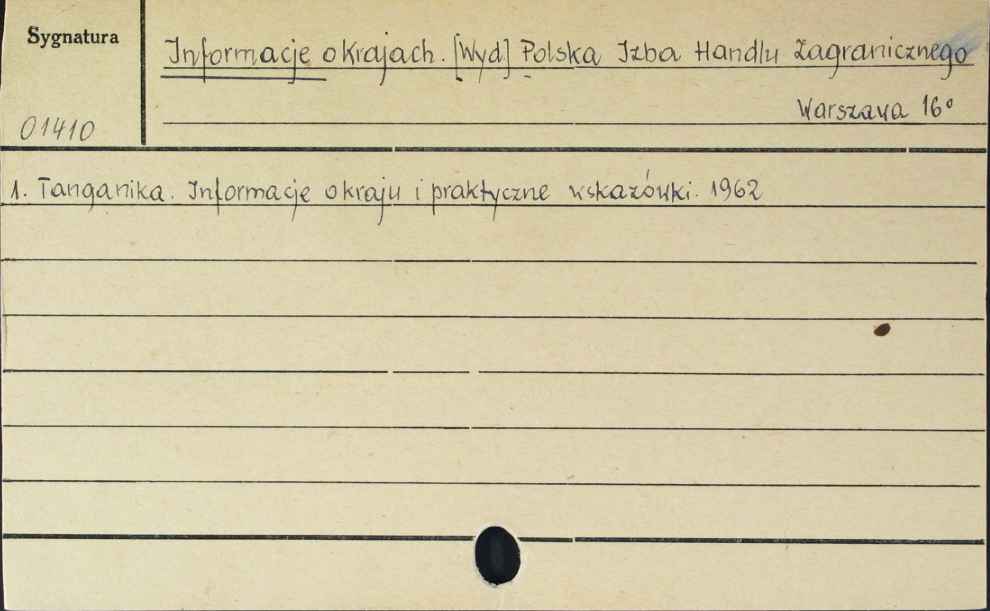 Sygnatura
Informacje o krajach. [Wyd] Polska Izba Handlu Zagranicznego
Warszawa 16°
01410
1. Tanganika. Informacje o kraju i praktyczne wskazówki. 1962